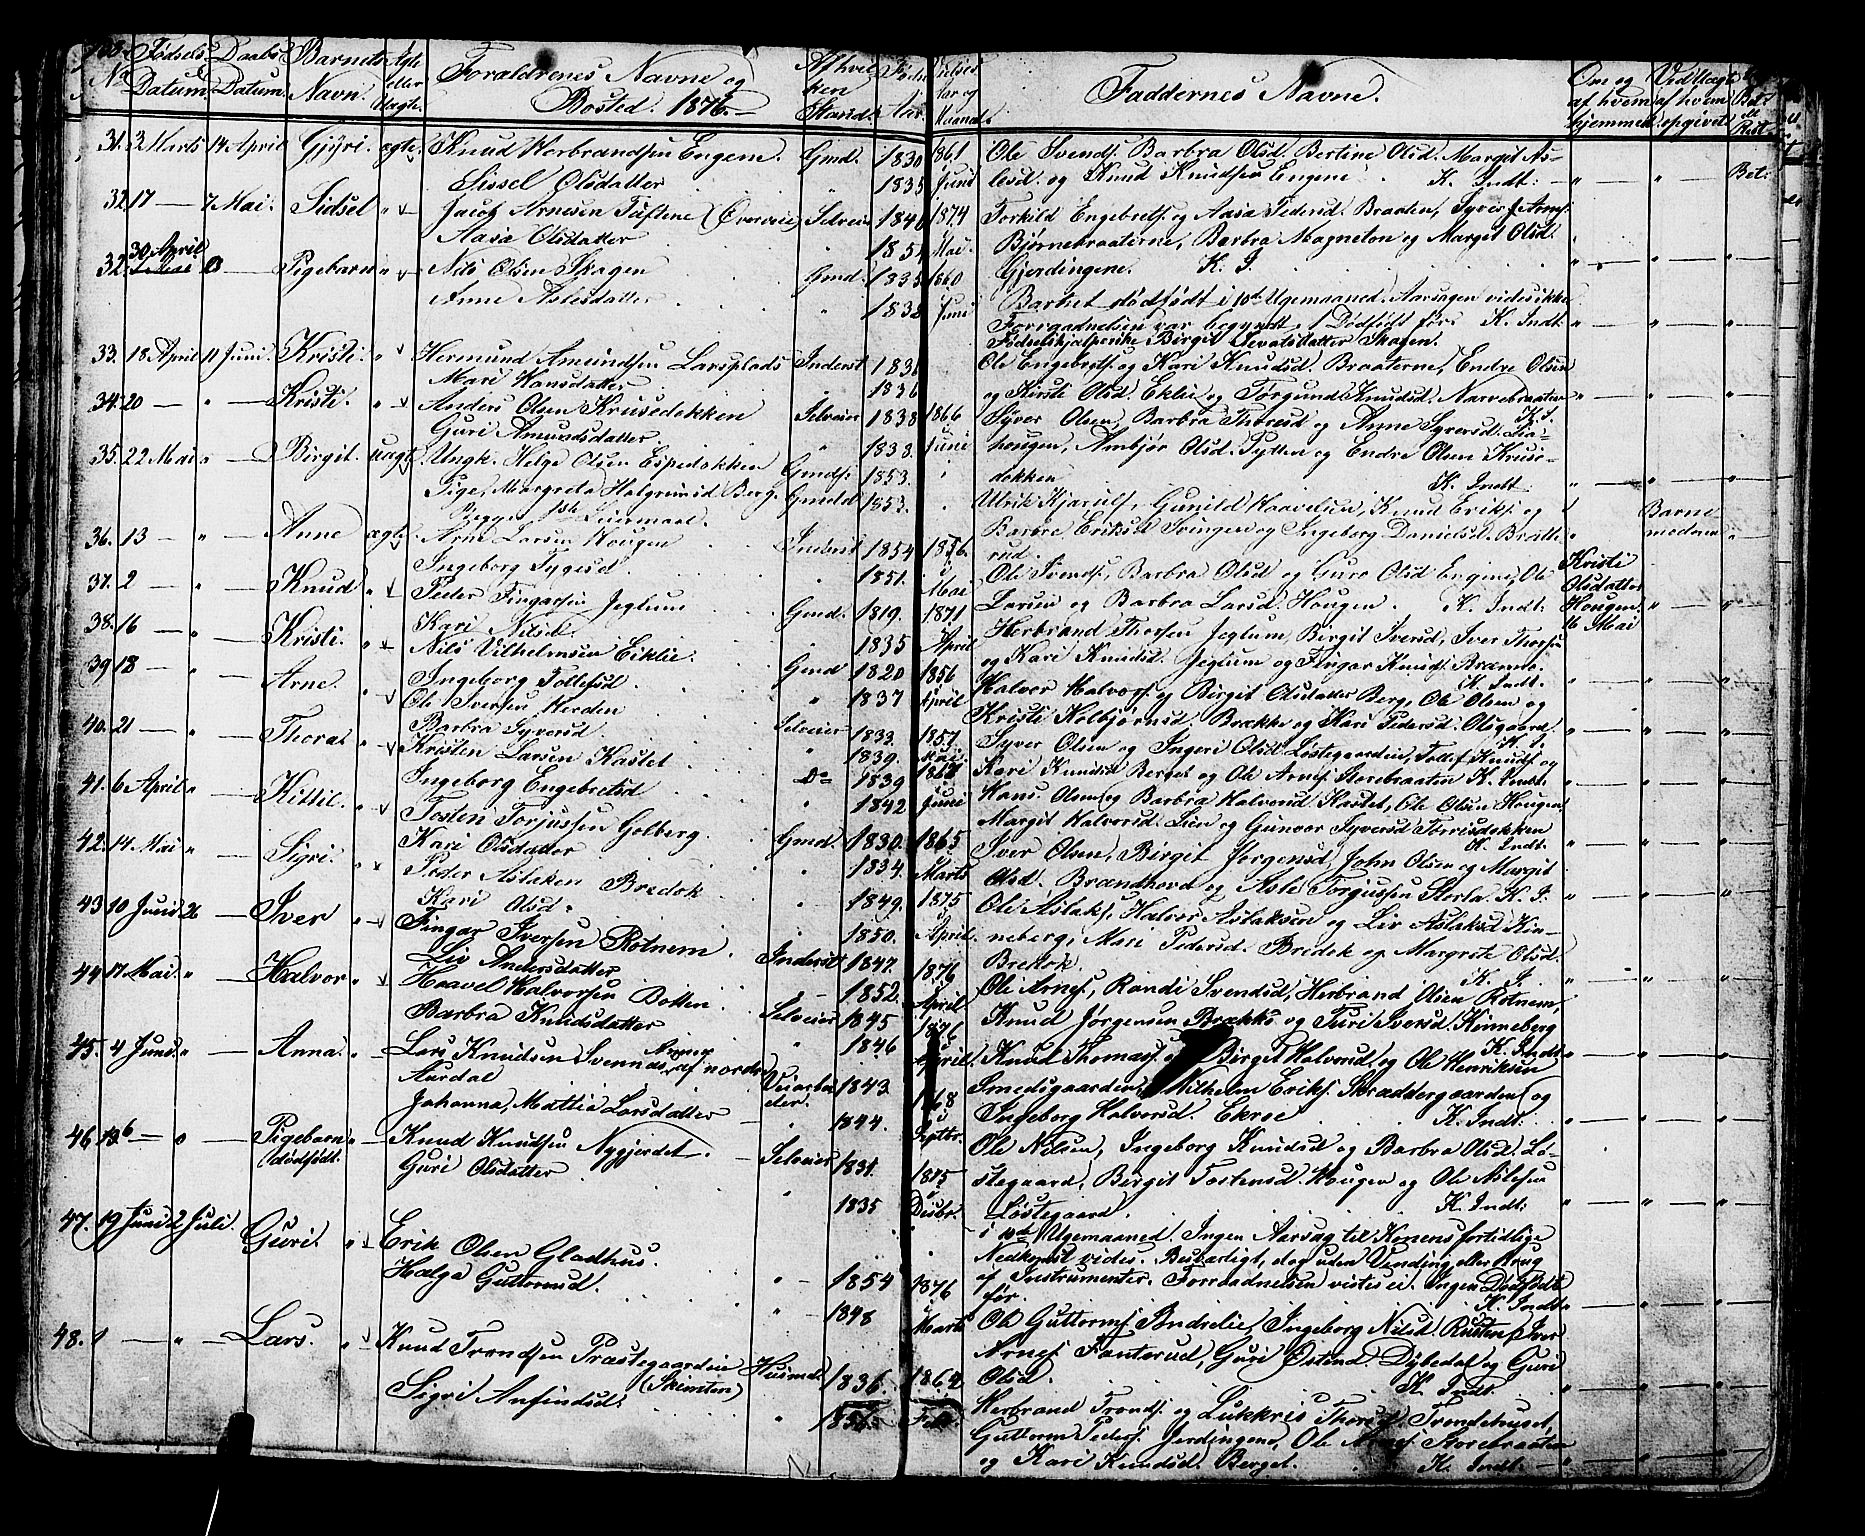 Fødsels Daabs Barnets Ægte Forældrenes Navne og Af hvil Fødsl Faddernes Navne. Om og Vidt Uægt
No Datum. Datum. Navn. eller Bosted. 1876.— ken Aar. Aar og af hvem af hvem
Uægte. Stand. hjemmed. opgivet
31. 3 Marts 14 April Gjyri. ægte Knud Herbrandsen Engene. Gmd. 1830 1861 Ole Svends. Barbra Olsd. Bertine Olsd. Margit As-
Sissel Olsdatter 1835 Juni lesd. og Knud Knudsen Engene. K. Indt: Bet:
32. 17 — 7 Mai. Sidsel " Jacob Arnesen Tuftene Selveier 1840 1874 Torkild Engebrets. og Aasa Pedersd. Braaten, Syver Arns.
Aasa Olsdatter 1854 Mai. Bjørnebraaterne, Barbra Magneton og Margit Olsd.
30 April
32. 0 — Pigebarn " Nils Olsen Skagen Gmd. 1835 1860 Gjerdingene. K. I.
Anne Aslesdatter 1838 Juni Barnet dødfødt i 10de Ugemaaned. Aarsagen vides ikke
Forraadnelsen var begyndt. 1 Dødfødt før. K. Indt.
Fødselshjælperske Birgit Skagen.
33. 18 April 11 Juni. Kristi. " Hermund Amundsen Larsplads Inderst 1836 Ole Engebrets. og Kari Knudsd. Braaterne, Endre Olsen
Mari Hansdatter 1836 og Kirsti Olsd. Eklie og Torgund Knudsd. Narvebraaten
34. 20 — " — Kristi. " Anders Olsen Krusedokken Selveier 1838 1866 Syver Olsen, Barbra Thoresd og Anne Syversd. Lia- K. I.
Guri Amundsdatter. 1838. Juni hougen, Ambjør Olsd. Tytten og Endre Olsen Kruse-
35. 22 Mai " — Birgit. uægt. Ungk. Helge Olsen Espedokken Gmds. 1853. dokken K. Indt:
Pige, Margreta Halgrimsd Berg. Gmdd 1853. Ulrik Kjærulf, Gunild Haavelsen, Knud Eriks. og Barne
Begges 1ste Leiermaal. Barbro Eriksd. Svingen og Ingeborg Danielsd. Bratte- moderen
36. 13 — " — Anne ægte Arne Larsen Hougen Inderst 1854 1876. rud.
Ingeborg Tygesd 1851. Mai Ole Svends., Barbra Olsd og Guro Olsd Engene, Ole Kristi
37. 2 — " — Knud " Peder Fingarsen Jeglum Gmd. 1819. 1871 Larsen og Barbra Larsd. Hougen. K. Indt: Olsdatter
Kari Nilsd. 1835 April Herbrand Thorsen Jeglum, Birgit Iversd, Iver Thorsen Hougen.
38. 16 — " — Kristi. " Nils Vilhelmsen Eiklie. Gmd 1820 1856 og Kari Knudsd. Jeglum og Fingar Knuds. Bræmmo. 16 Mai
Ingeborg Tollefsd. 1837 April Halvor Halvors. og Birgit Olsdatter Berg, Ole Olsen og K. Indt.
39. 18 — " — Arne. " Ole Iversen Harden Selveier 1833. 1857 Kristi Kolbjørnsd. Brække og Kari Pedersd. Olsgaard.
Barbra Syversd. 1839. Mai. Syver Olsen og Ingeri Olsd Løstegaarden, Tollef Knuds. og K. I.
40. 21 — " — Thora. " Kristen Larsen Kastet Do 1839 Kari Knudsd Berget og Ole Arnes. Storebraaten K. Indt.
Ingeborg Engebretsd 1842 Juni Hans Olsen og Barbra Halvorsd Kastet, Ole Olsen Hougen
41. 6 April " — Kittil. " Tosten Torjussen Golberg. Gmd. 1830. 1865 Margit Halvorsd. Lien og Gunvor Syversd Torrisdokken
Kari Olsdatter 1834. Marts Iver Olsen, Birgit Jørgensd, John Olsen og Margit K. Indt.
42. 14 Mai " — Sigri. " Peder Aslaksen Bredok 1849. 1875 Olsd. Brændhovd og Asle Torgussen Storla. K. I.
Kari Olsd. 1850. April. Ole Aslaks., Halvor Aslaksen og Liv Aslaksd Kin-
43. 10 Juni 26 — Iver " Fingar Iversen Rotnem. Inderst 1847. 1876 neberg, Mari Pedersd. Bredok og Margrete Olsd.
Liv Andersdatter 1852. April Bredok. K. I.
44. 17 Mai. " — Halvor " Haavel Halvorsen Botten. Selveier 1845 1876 Ole Arnes., Randi Svendsd, Herbrand Olsen Rotnem,
Barbra Knudsdatter 1846 April Knud Jørgensen Brække og Turi Iversd. Kinneberg
45. 4 Juni. " — Anna. " Lars Knudsen Svennes af nordre Veiarbei- 1843 1868 Knud Thomas. Birgit Halvorsd og Ole Henriksen K. Indt.
Aurdal der. Smedsgaarden, Vilhelm Eriks. Skræddergaarden og
Johanna, Mattia Larsdatter 1844. Septbr. Ingeborg Halvorsd. Ekroe K. Indt:
46. — 0 — Pigebarn " Knud Knudsen Nygjerdet. Selveier 1831. 1875 Ole Nilsen, Ingeborg Knudsd og Barbra Olsd. Lø-
dødfødt. Guri Olsdatter 1835 Desbr. stegaard, Birgit Tostensd. Hougen og Ole Aslesen
Løstegaard. K. Indt:
47. 19 Juni 2 Juli. Guri. " Erik Olsen Gladhus. 1854 1876 i 10de Ugemaaned. Ingen Aarsag til Konens fortidlige
Helga Guttormsd. 1848 Marts Nedkomst vides. Besvarligt, dog uden Vending eller Brug
af Instrumenter. Forraadnelsen vistes ei. Ingen Dødfødt
før. K. Indt.
48. 1 — " — Lars. " Knud Trondsen Præstegaarden Husmd. 1836. 1862 Ole Guttorms. Indrelie, Ingeborg Nilsd. Rusten, Iver
(Skinsten) Arnes. Fanterud, Guri Østensd. Dybedal og Guri
Sigri Anfindsd. Olsd. K. Indt.
Herbrand Tronds. og Lukkris Thorsd. Trondehuset,
Guttorm Peders. Jerdingene, Ole Arnes. Storebraaten
og Kari Knudsd. Berget. K. Indt: